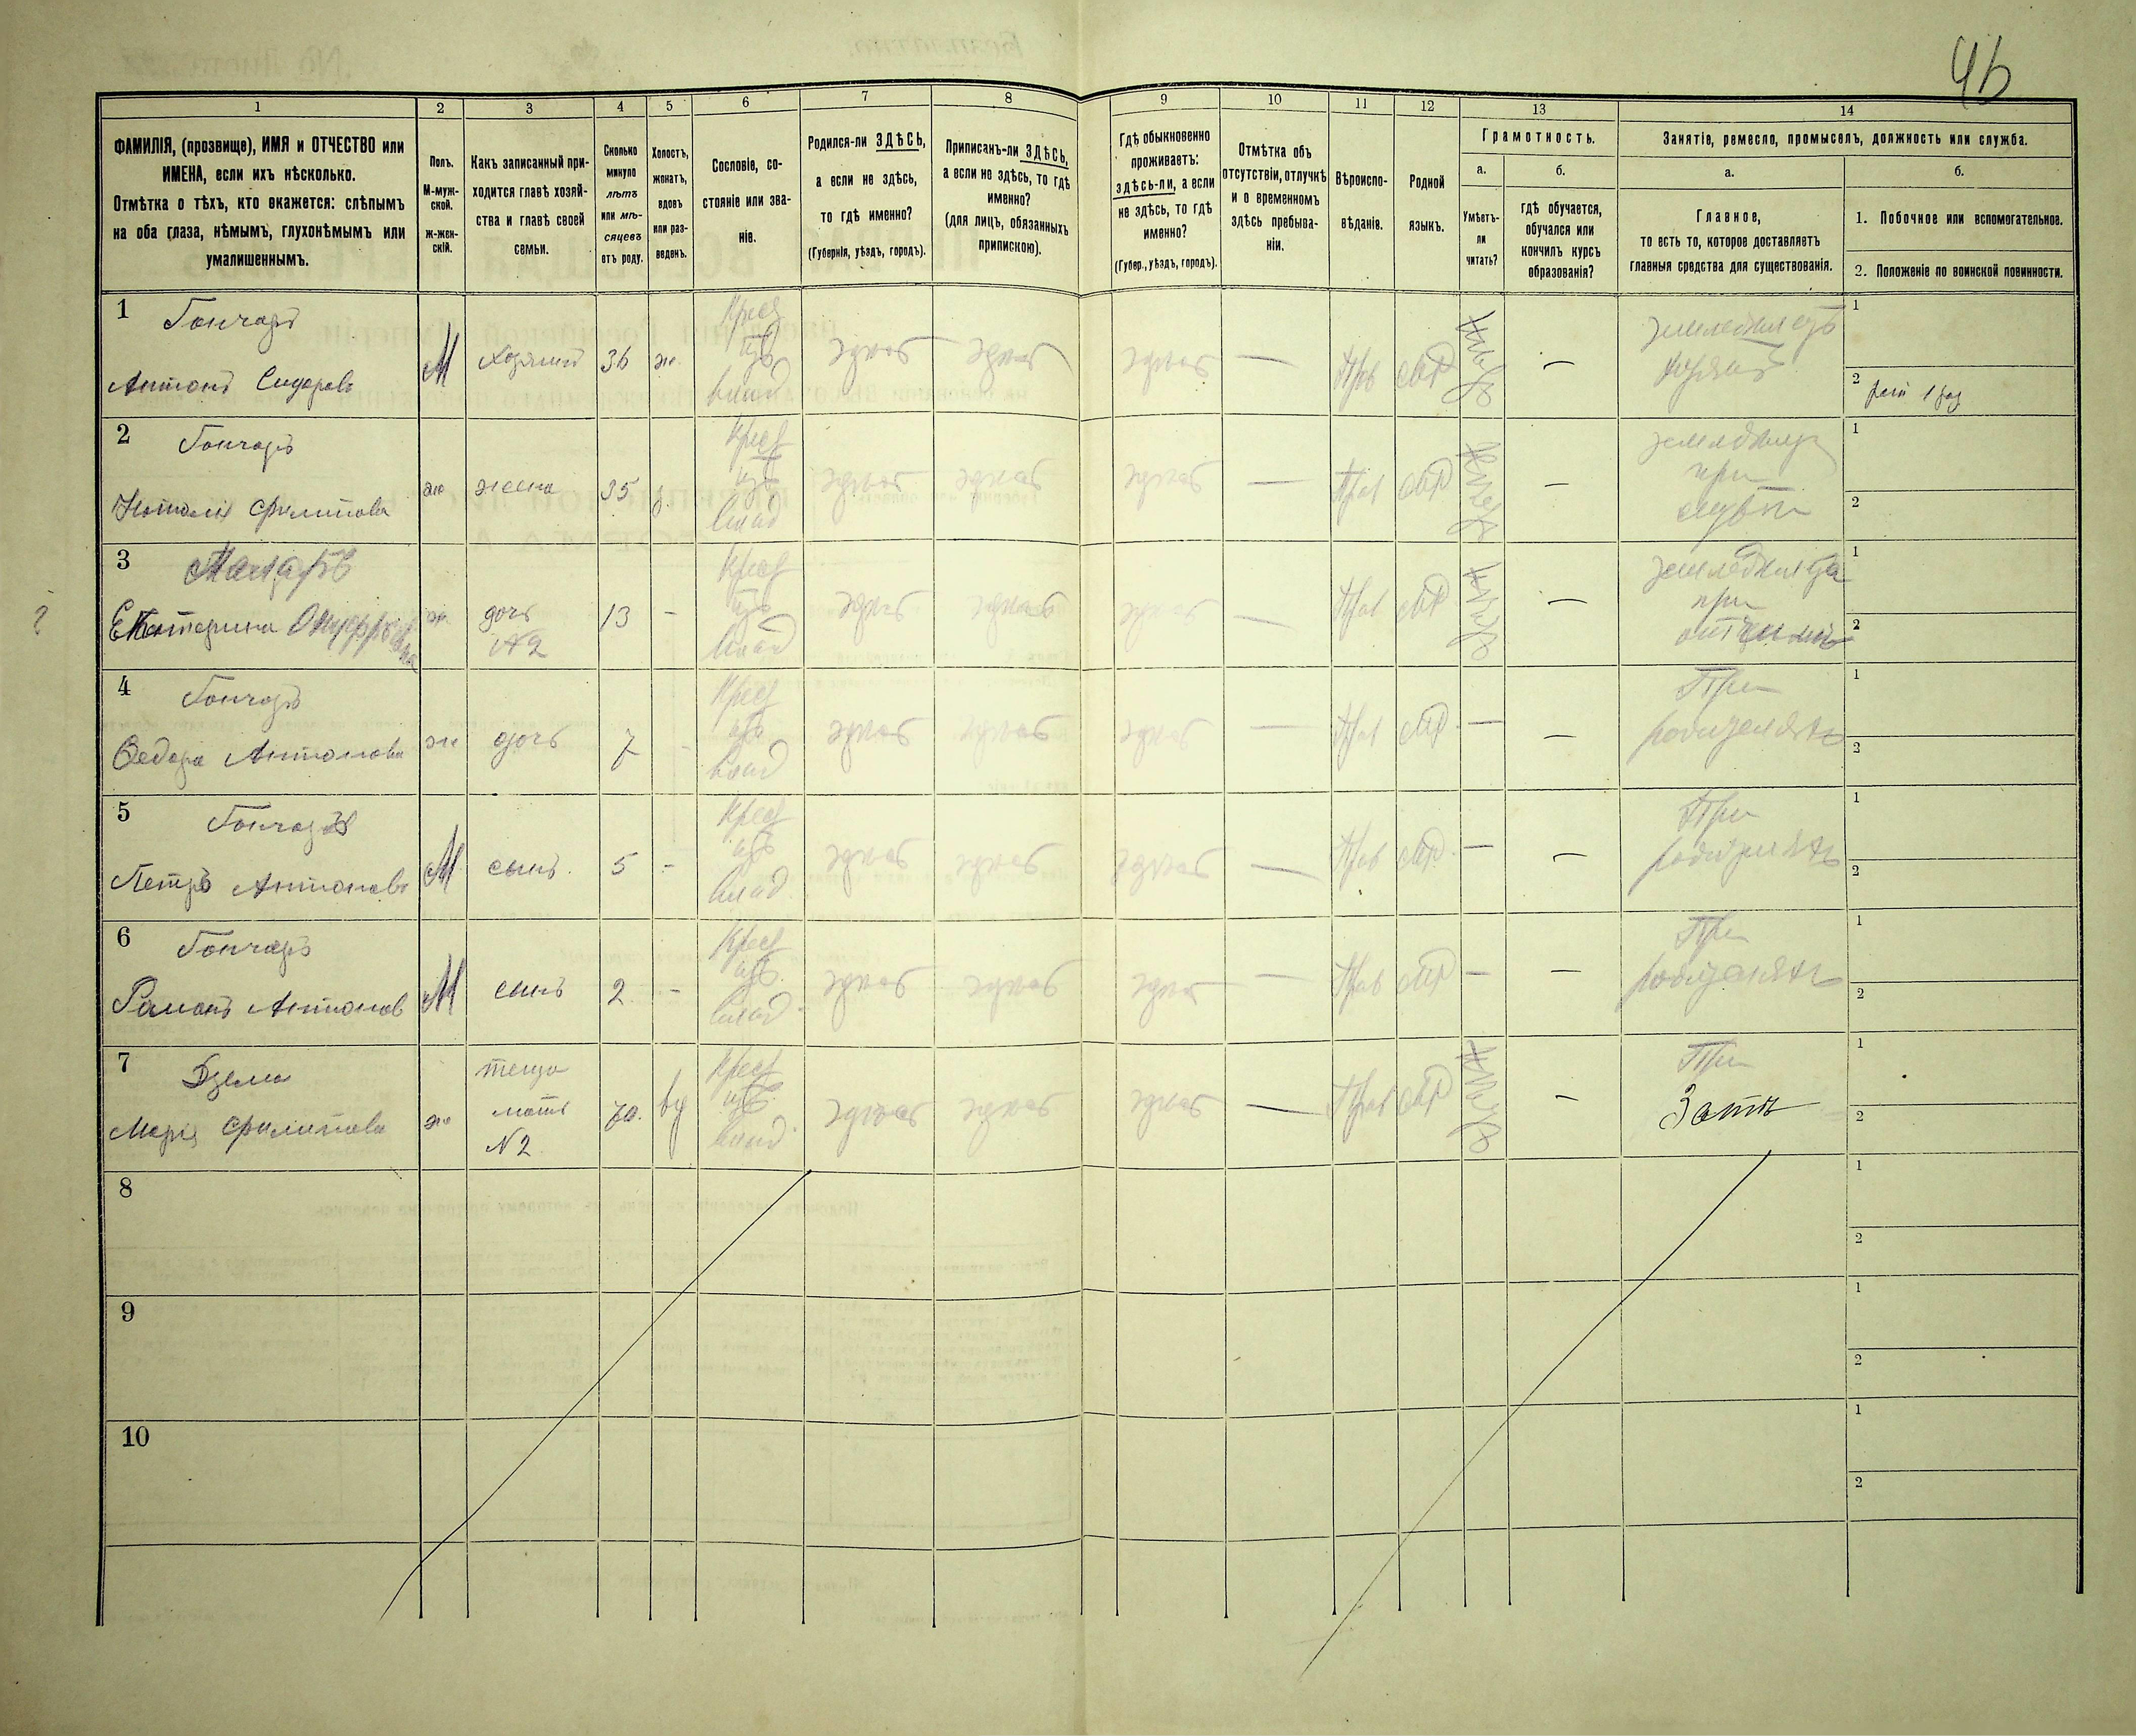 46
1 2 3 4 5 6 7 8 9 10 11 12 13 14
ФАМИЛІЯ, (прозвище), ИМЯ и ОТЧЕСТВО или
ИМЕНА, если ихъ нѣсколько.
Отмѣтка о тѣхъ, кто окажется: слѣпымъ
на оба глаза, нѣмымъ, глухонѣмымъ или
умалишеннымъ.
Полъ.
М-муж-
ской.
ж-жен-
скій.
Какъ записанный при-
ходится главѣ хозяй-
ства и главѣ своей
семьи.
Сколько
минуло
лѣтъ
или мѣ-
сяцевъ
отъ роду.
Холостъ,
женатъ,
вдовъ
или раз-
веденъ.
Сословіе, со-
стояніе или зва-
ніе.
Родился-ли ЗДѢСЬ,
а если не здѣсь,
то гдѣ именно?
(Губернія, уѣздъ, городъ).
Приписанъ-ли ЗДѢСЬ,
а если не здѣсь, то гдѣ
именно?
(для лицъ, обязанныхъ
припискою).
Гдѣ обыкновенно
проживаетъ:
здѣсь-ли, а если
не здѣсь, то гдѣ
именно?
(Губер., уѣздъ, городъ).
Отмѣтка объ
отсутствіи, отлучкѣ
и о временномъ
здѣсь пребыва-
ніи.
Вѣроиспо-
вѣданіе.
Родной
языкъ.
Грамотность.
а.
Умѣетъ-
ли
читать?
б.
гдѣ обучается,
обучался или
кончилъ курсъ
образованія?
Занятіе, ремесло, промыселъ, должность или служба.
а.
Главное,
то есть то, которое доставляетъ
главныя средства для существованія.
б.
1. Побочное или вспомогательное.
2. Положеніе по воинской повинности.
1 Гончаръ
Антонъ Сидоровъ
М Хозяинъ 36 ж.
Крест
изъ
влад
здѣсь здѣсь здѣсь — Прав мр нѣтъ —
земледѣлецъ
хозяинъ
1
2
2 Гончаръ
Наталія Филипова
ж жена 35 з.
Крест
изъ
влад
здѣсь здѣсь здѣсь — Прав мр нѣтъ —
при
1
2
3
Екатерина Онуфріева
ж дочь
N2
13 -
Крест
изъ
влад
здѣсь здѣсь здѣсь — Прав мр нѣтъ —
земледѣлица
при
1
2
?
4 Гончаръ
Федора Антонова
ж дочь 7 -
Крест
изъ
влад
здѣсь здѣсь здѣсь — Прав мр — —
При
родителяхъ
1
2
5 Гончаръ
Петръ Антоновъ
М сынъ. 5 -
Крест
изъ
влад
здѣсь здѣсь здѣсь — Прав мр — —
При
родителяхъ
1
2
6 Гончаръ
Романъ Антонов
М сынъ 2 -
Крест
изъ
влад
здѣсь здѣсь здѣсь — Прав мр — —
При
родителяхъ
1
2
7 Дзема
Марія Филипова
ж
теща
мать
N2
70. вд
Крест
изъ
влад
здѣсь здѣсь здѣсь — Прав мр нѣтъ —
При
Зятѣ
1
2
8
1
2
9
1
2
10
1
2